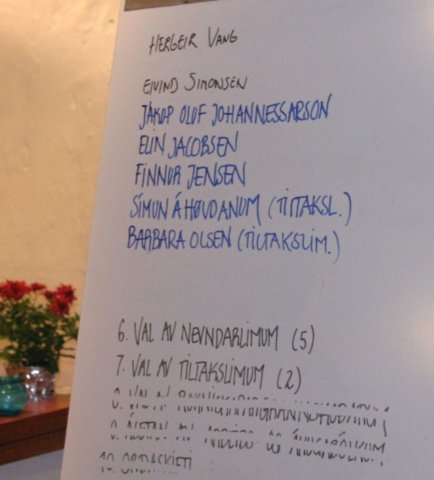 HERGEIR VANG
EIVIND SIMONSEN
JÁKUP OLUF JOHANNESSARSON
ELIN JACOBSEN
FINNUR JENSEN
SÍMUN Á HØVDANUM (TILTAKSL.)
BARBARA OLSEN (TILTAKSLIM.)
6. VAL AV NEVNDARLIMUM (5)
7. VAL AV TILTAKSLIMUM (2)
8. VAL AV
9.
10. ORÐASKIFTI